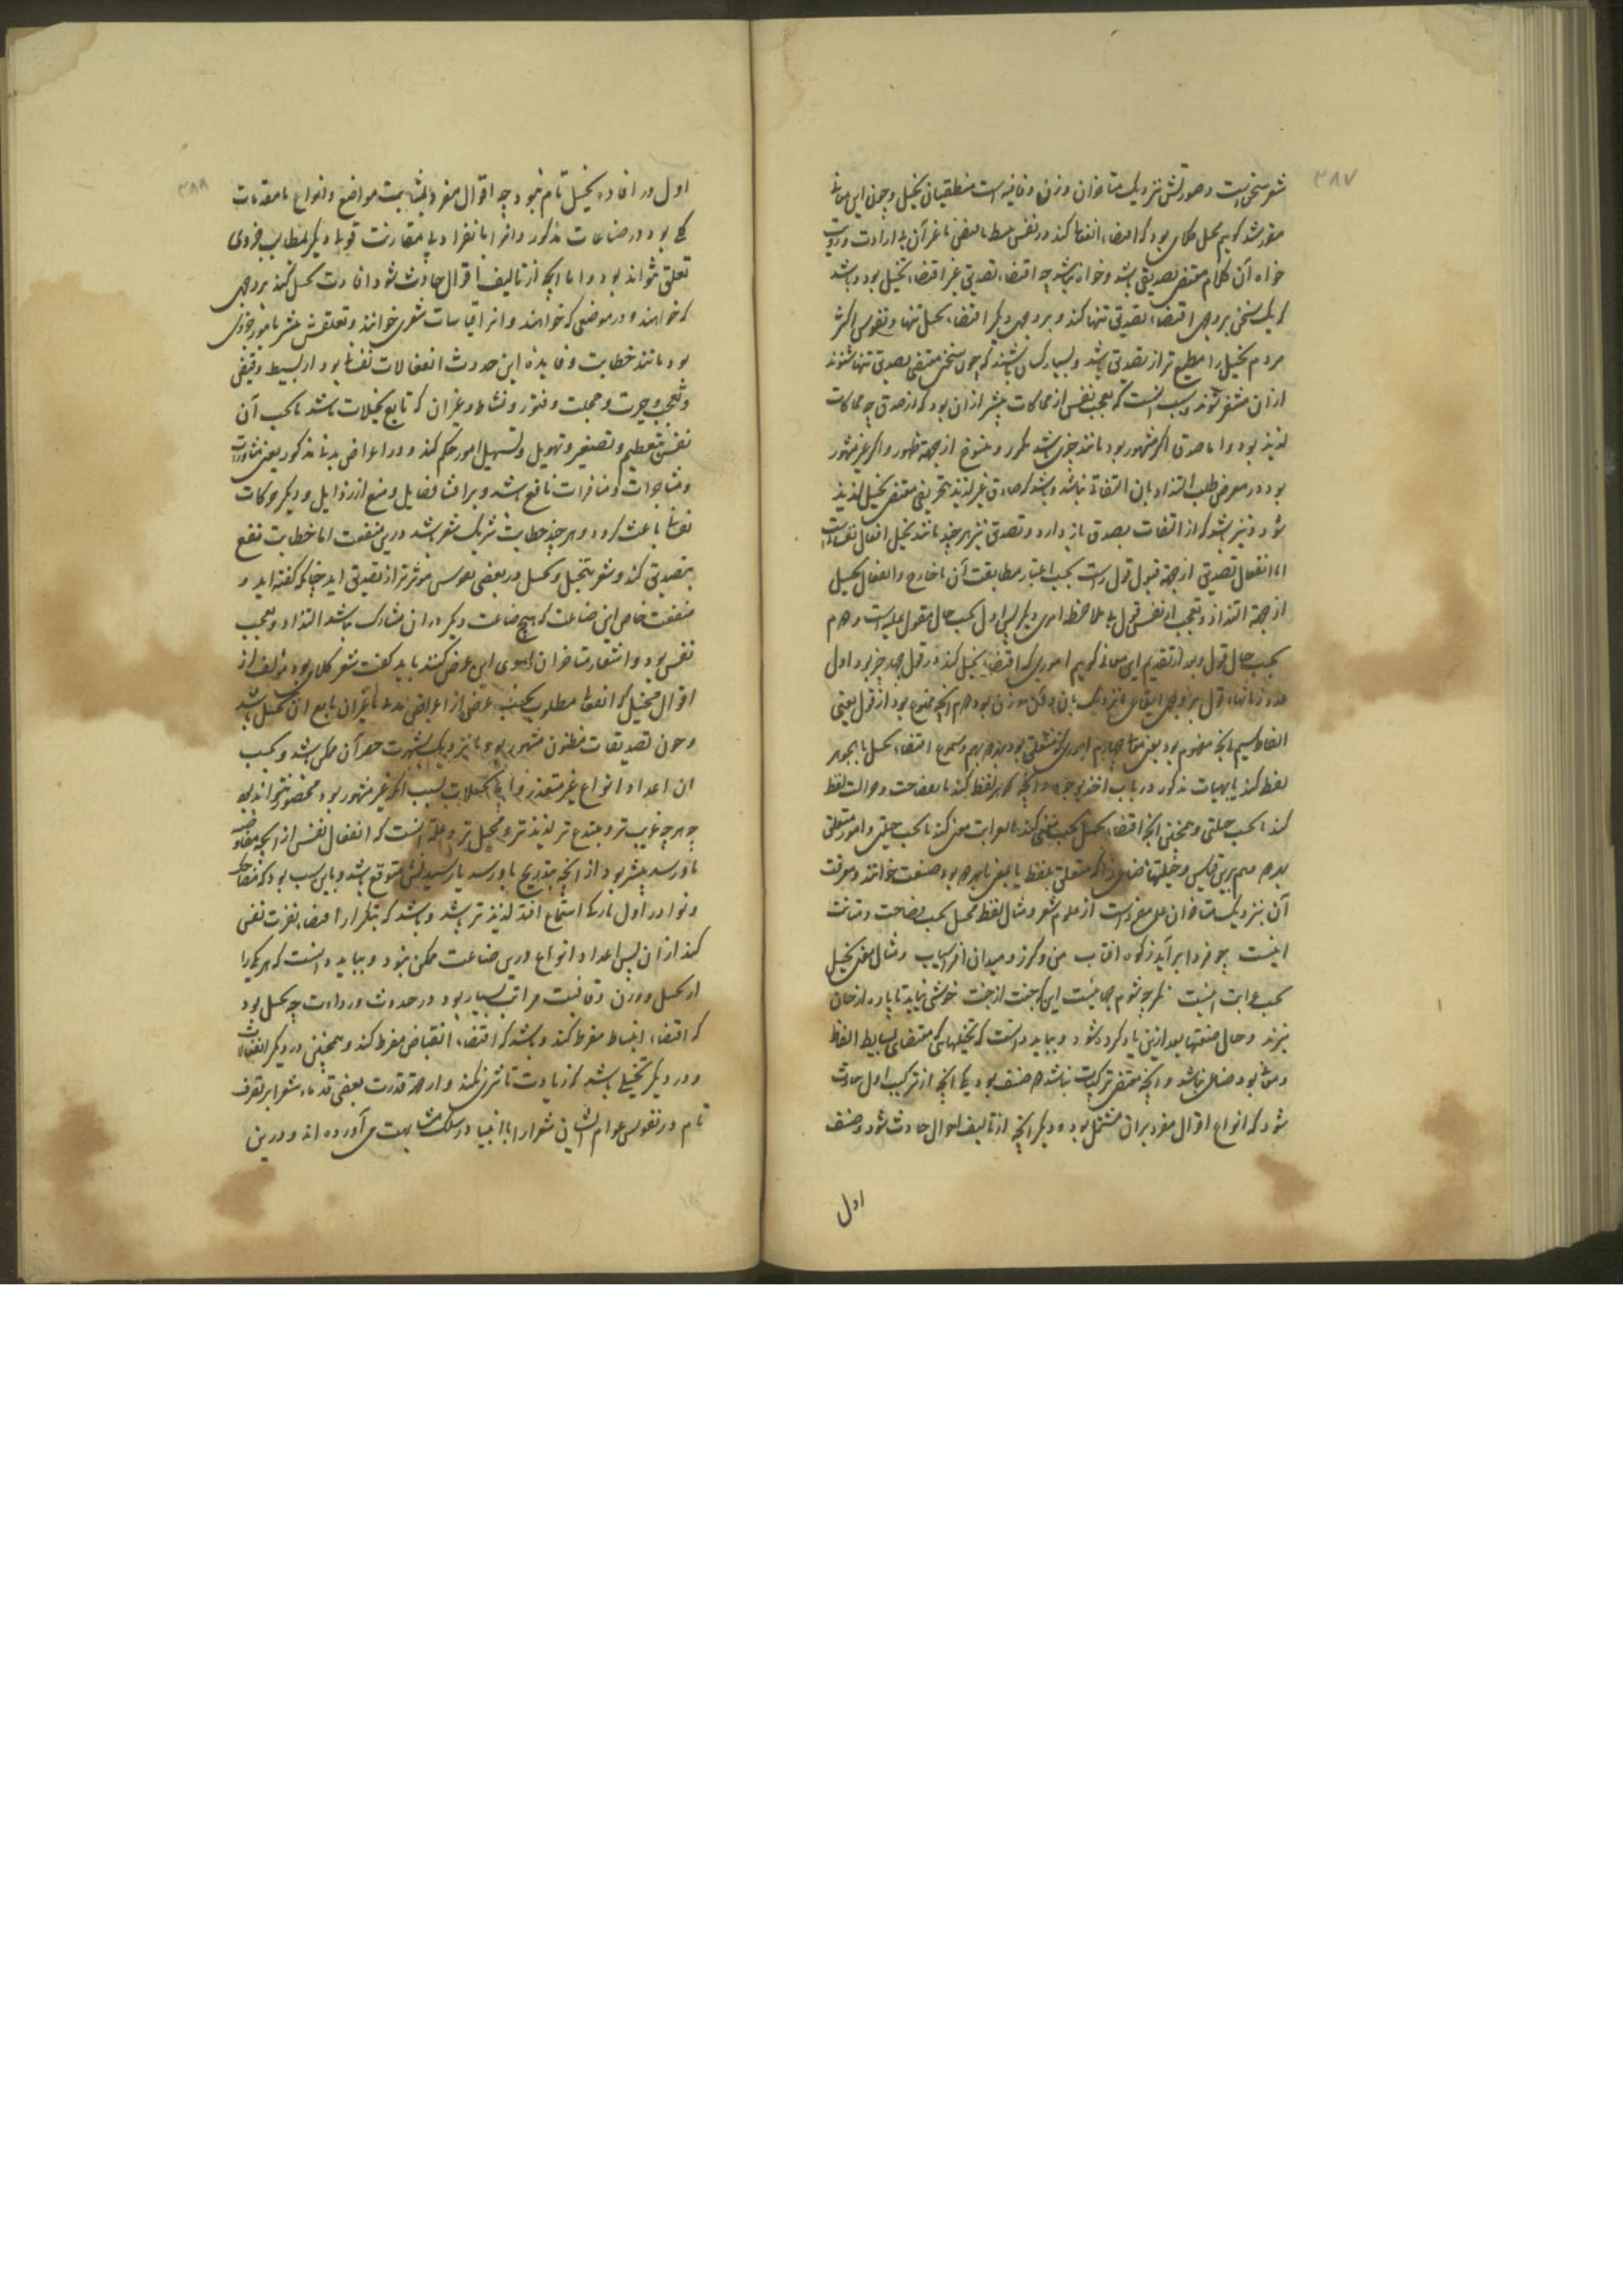 ۳۸۷
شعر سخنیست و صورتش نزدیک متاخران وزن و قافیه است منطقیان تخیل و چون این معانی
مقرر شد گوییم مخیل کلامی بود که اقتضاء انفعالی کند در نفس ببسط یا بقبض یا غیر آن بی ارادت و رویت
خواه آن کلام مقتضی تصدیقی باشد و خواه نباشد چه اقتضاء تصدیق غیر اقتضاء تخییل بود و باشد
که یک سخن بر وجهی اقتضاء تصدیق تنها کند و بر وجهی دیگر اقتضاء تخییل تنها و نفوس اکثر
مردم تخییل را مطیع تر از تصدیق باشد و بسیار کسان باشند که چون سخنی مقتضی تصدیق تنها شنوند
از آن متنفر شوند و سبب آنست که تعجب نفس از محاکات بیشتر از آن بود که از صدق چه محاکات
لذیذ بود و اما صدق اگر مشهور بود مانند چیزی باشد مکرر و منسوخ از جهة ظهور و اگر غیر مشهور
بود در معرض طلب التذاذ بآن التفات نباشد و باشد که صادق غیر لذیذ بتحریفی مقتضی تخییل لذیذ
شود و نیز باشد که از التفات بصدق باز دارد و تصدیق نیز هر چند مانند تخییل انفعال نفسانیست
اما انفعال تصدیق از جهة قبول قول است بحسب اعتبار مطابقت آن با خارج و انفعال تخییل
از جهة التذاذ و تعجب از نفس قول بی ملاحظه امری دیگر پس اول بحسب حال مقول علیه است و دوم
بحسب حال قول و بعد از تقدیم این معانی گوییم اموری که اقتضاء تخییل کند در قول چهار چیز بود اول
عدد زمانهاء قول بر وجهی ایقاعی یا نزدیک بآن و آن وزن بود دوم آنچه مسموع بود از قول یعنی
الفاظ سیم آنچه مفهوم بود یعنی معانی چهارم اموری که متعلق بود بهر دو بهم و مسموع اقتضاء تخییل یا بجوهر
لفظ کند یا بهیات مذکور در باب اخذ بوجوه و آنچه گوهر لفظ کند یا بفصاحت و جزالت لفظ
کند یا بحسب حیلتی و همچنین آنچه اقتضاء تخییل بحسب معنی کند یا بغرابت معنی کند یا بحسب حیلتی و امور متعلق
بهر دو هم برین قیاس و حیلتها صناعی را که متعلق بلفظ یا بمعنی یا بهر دو بود صنعت خوانند و معرفت
آن بنزدیک متاخران علمی مفرد است از علوم شعر و مثال لفظ مخیل بحسب فصاحت و متانت
اینست چو فردا برآید ز کوه آفتاب من و گرز و میدان افراسیاب و مثال معنی تخییل
بحسب غرابت اینست
بنزند و حال صنعتها بعد ازین یاد کرده شود و بباید دانست که تخیلهایی که مقتضای بسایط الفاظ
و معانی بود صناعی نباشد و آنچه مقتضی ترکیبات باشد دو صنف بود یکی آنچه از ترکیب اول حادث
شود که انواع اقوال مفرد بر آن مشتمل بود و دیگر آنچه از تالیف اقوال حادث شود و صنف
اول
۳۸۸
اول در افاده تخییل تام نبود چه اقوال مفرد بمثابت مواضع و انواع یا مقدمات
کلی بود در صناعات مذکور و آنرا بانفراد بی مقارنت قولها دیگر بمطالب جزوی
تعلق نتواند بود و اما آنچه از تالیف اقوال حادث شود افادت تخییل کند بر وجهی
که خواهند و در موضعی که خواهند و آنرا قیاسات شعری خوانند و تعلقش بیشتر بامور جزوی
بود مانند خطابت و فایده این حدوث انفعالات نفسانی بود از بسط و قبض
و تعجب و حیرت و خجلت و فتور و نشاط و غیر آن که تابع تخیلات باشد تا بحسب آن
نفس بتعظیم و تصغیر و تهویل و تسهیل امور حکم کند و در اعراض مدنی مذکور یعنی مشاورات
و مشاجرات و منافرات نافع باشد و بر اقتناء فضایل و منع از رذایل و دیگر حرکات
نفسانی باعث گردد و هر چند خطابت شریک شعر باشد درین منفعت اما خطابت نفع
بتصدیق کند و شعر بتخیل و تخییل در بعضی نفوس موثرتر از تصدیق آید چنانکه گفته آید و
منفعت خاص این صناعت که هیچ صناعت دیگر در آن مشارک نباشد التذاذ و تعجب
نفس بود
اقوال مخیل
و چون تصدیقات مظنون مشهور بود یا نزدیک بشهرت حصر آن ممکن باشد و بحسب
آن اعداد انواع غیر متعذر و اما تخیلات بسبب آنکه غیر مشهور بود محصور نتواند بود
چه هر چه غریب تر و مبتدع تر لذیذتر و مخیل تر و علة آنست که انفعال نفس از آنچه مفافصة
باو رسد بیشتر بود از آنچه بتدریج باو رسد یا رسیدنش متوقع باشد و باین سبب بود که مضاحک
و نوادر اول بار که استماع افتد لذیذتر باشد و باشد که بتکرار اقتضاء نفرت نفس
کند از آن پس اعداد انواع درین صناعت ممکن نبود و بباید دانست که هر یک را
از تخییل و وزن و قافیت مراتب بسیار بود در حدوث و رداءت چه تخییل بود
که اقتضاء انبساط مفرط کند و باشد که اقتضاء انقباض مفرط کند و همچنین در دیگر انفعالات
و در دیگر تخیلی باشد که زیادت تاثیری نکند و از جهة قدرت بعضی قدماء شعرا بر تصرف
تام در نفوس عوام ایشان شعرا را با انبیا در سلک مشابهت می آورده اند و درین